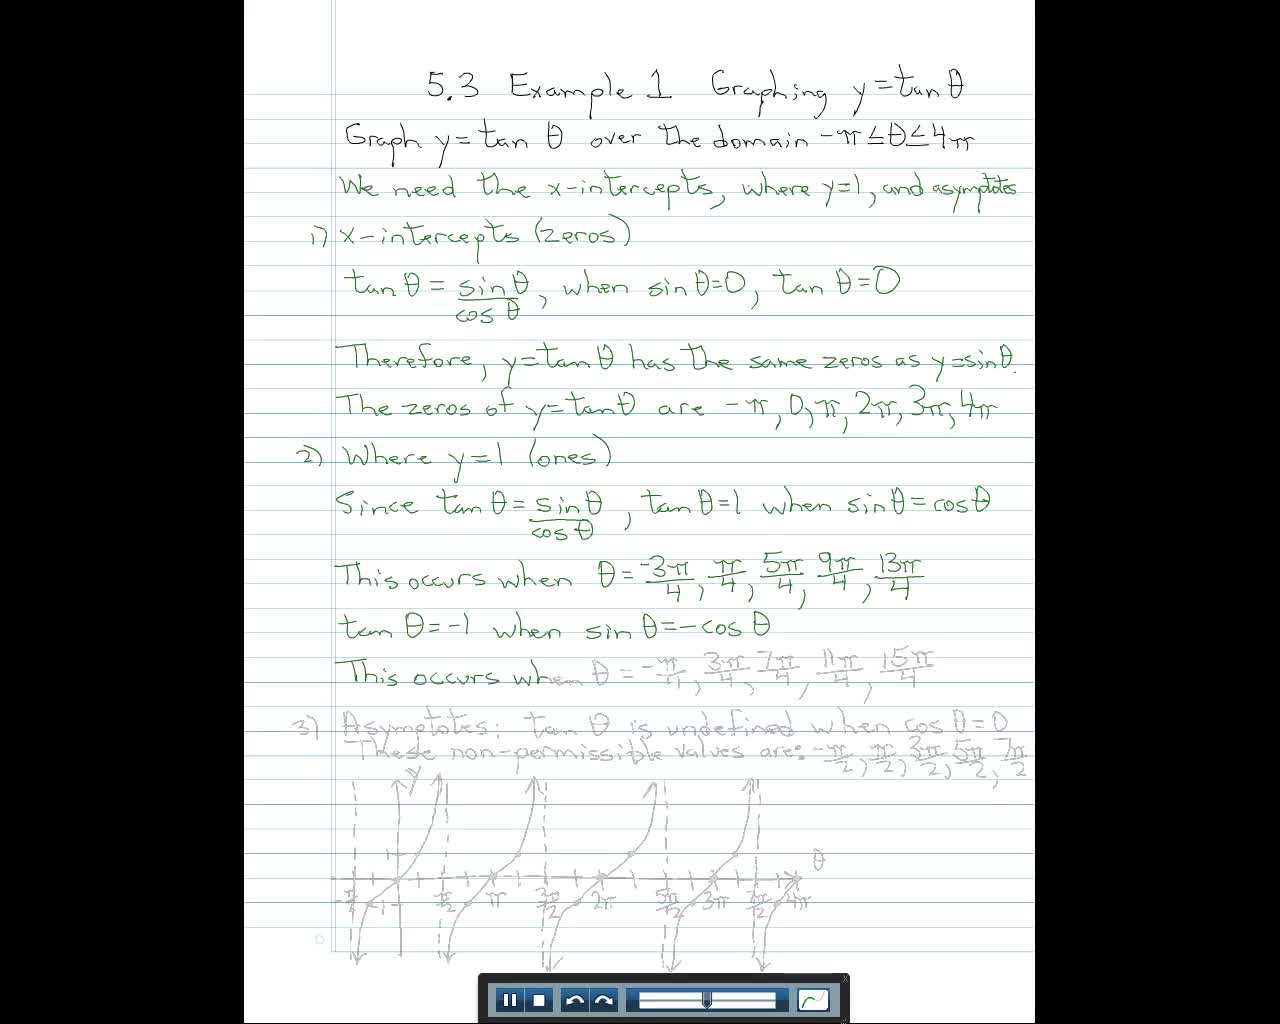 5.3 Example 1 Graphing y=tan θ
Graph y=tan θ over the domain -π≤θ≤4π
We need the x-intercepts, where y=1, and asymptotes
1) x-intercepts (zeros)
tan θ = sin θ/cos θ, when sin θ=0, tan θ=0
Therefore, y=tan θ has the same zeros as y=sin θ.
The zeros of y=tan θ are -π, 0, π, 2π, 3π, 4π
2) Where y=1 (ones)
Since tan θ = sin θ/cos θ, tan θ=1 when sin θ=cos θ
This occurs when θ= -3π/4, π/4, 5π/4, 9π/4, 13π/4
tan θ=-1 when sin θ=-cos θ
This occurs when θ = -π/4, 3π/4, 7π/4, 11π/4, 15π/4
3) Asymptotes: tan θ is undefined when cos θ=0
These non-permissible values are: -π/2, π/2, 3π/2, 5π/2, 7π/2
y
1
θ
-π/2 -1 π/2 π 3π/2 2π 5π/2 3π 7π/2 4π